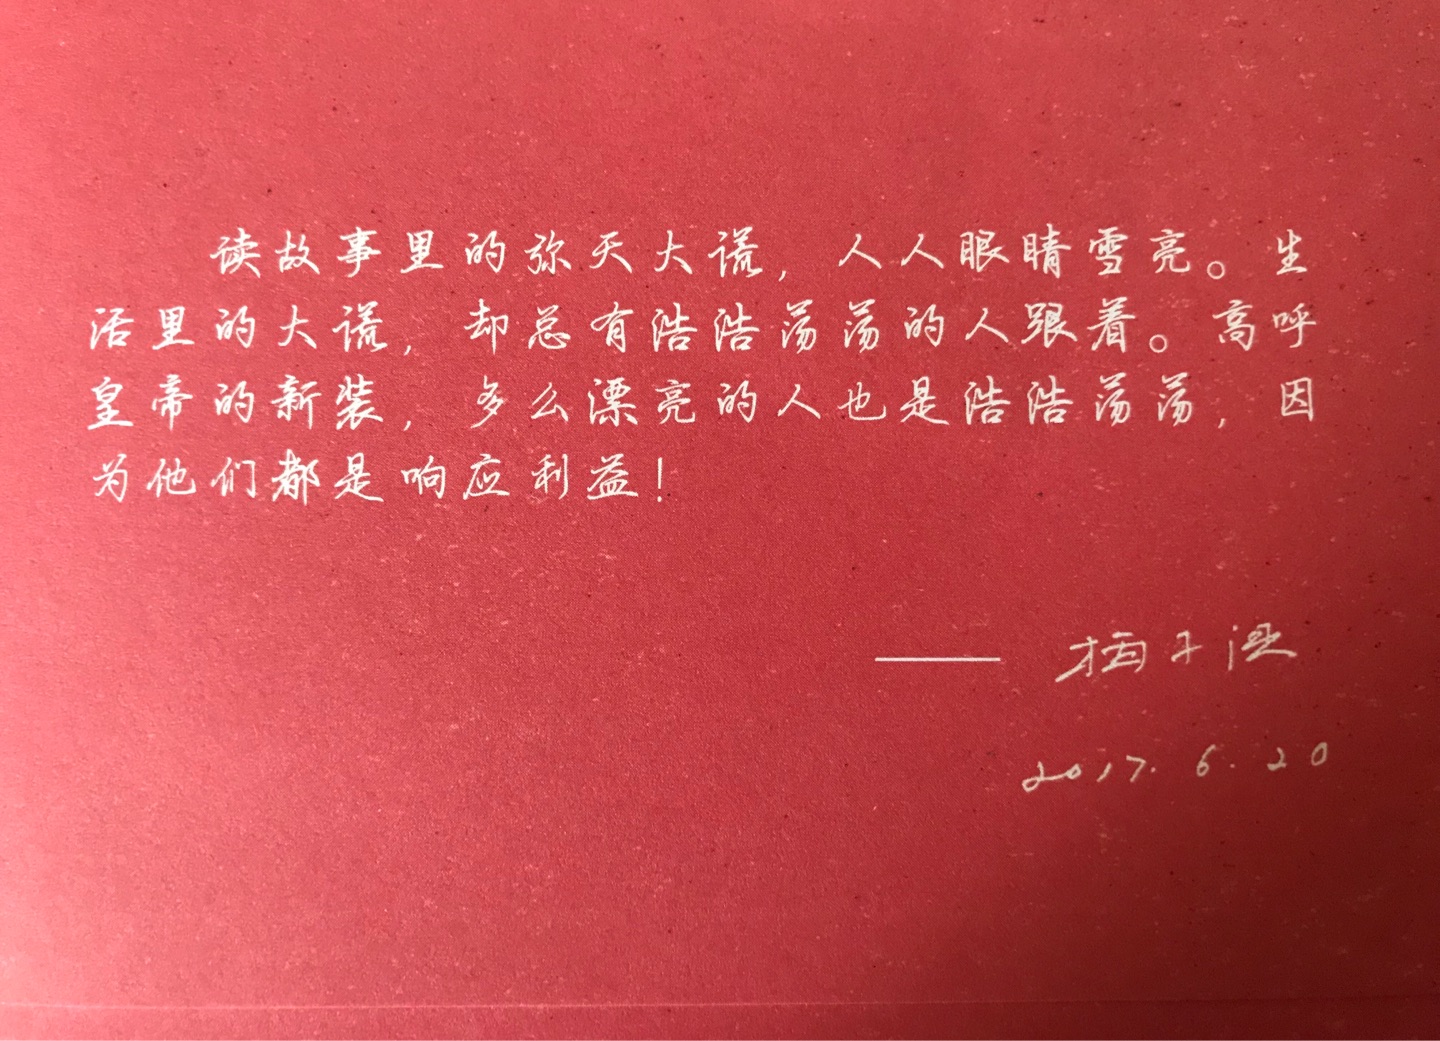 读故事里的弥天大谎，人人眼睛雪亮。生
活里的大谎，却总有浩浩荡荡的人跟着。高呼
皇帝的新装，多么漂亮的人也是浩浩荡荡，因
为他们都是响应利益！
——梅子涵
2017.6.20